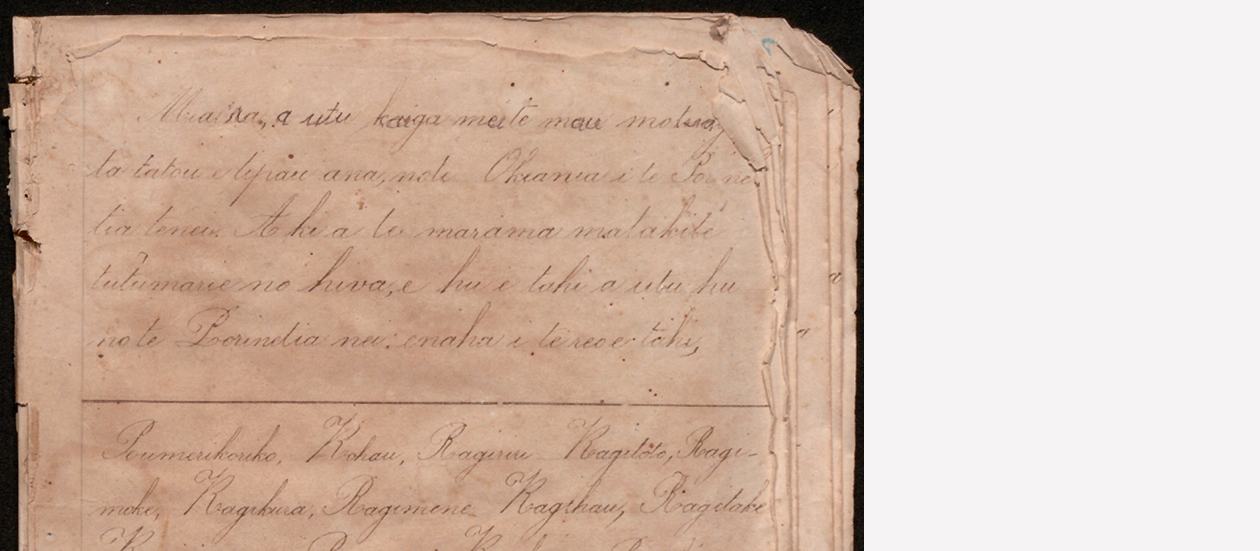 a utu kaiga meite mau motu
ta tatou e tipau ana, note Okiania i te Por ne
tia tenei. A ki a to marama matakite
tutumarie no hiva, e hu e tahi a utu hu
no te Porinetia nei: enaha i te reo e tahi,
Poumerikoriko, Kohau, Ragiriri Ragitoto, Ragi-
meke, Ragikura, Ragimene Ragihau, Ragitake